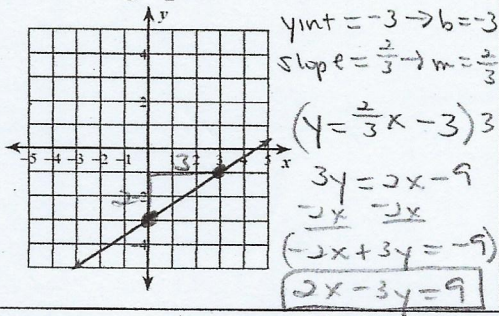 y
4
2
-5 -4 -3 -2 -1 2 3 4 5 x
3
2
-4
yint = -3 → b = -3
slope = 2/3 → m = 2/3
(y = 2/3x - 3) 3
3y = 2x - 9
-2x -2x
(-2x + 3y = -9)
2x - 3y = 9